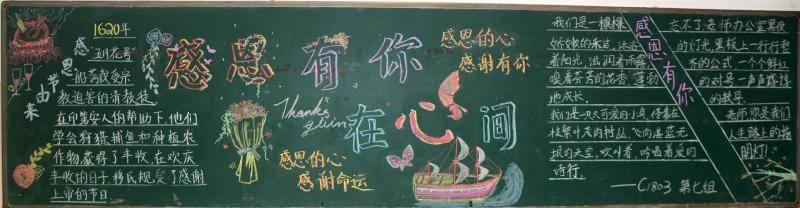 感恩节的由来
1620年
"五月花号"
船满载受宗
教迫害的清教徒
在印第安人的帮助下,他们
学会狩猎、捕鱼和种植农
作物,获得了丰收,在欢庆
丰收的日子,移民规定了感谢
上帝的节日.
感恩有你
在心间
Thanks
giving
感恩的心
感谢有你
感恩的心
感谢命运
我们是一棵棵
娇嫩的禾苗,沐浴
着阳光,滋润着雨露
嗅着芬芳的花香,蓬勃
地成长.
我们是一只只可爱的小鸟,停靠在
枝繁叶茂的树丛,飞向湛蓝无
垠的天空,欢叫着,吟唱着爱的
诗行.
感恩有你
忘不了老师办公室黑夜
的灯光,黑板上一行行整
齐的公式,一个个鲜红
的对号,一声声谆谆
的教导.
老师,你是我们
人生路上的指
明灯!
——C1803 第七组